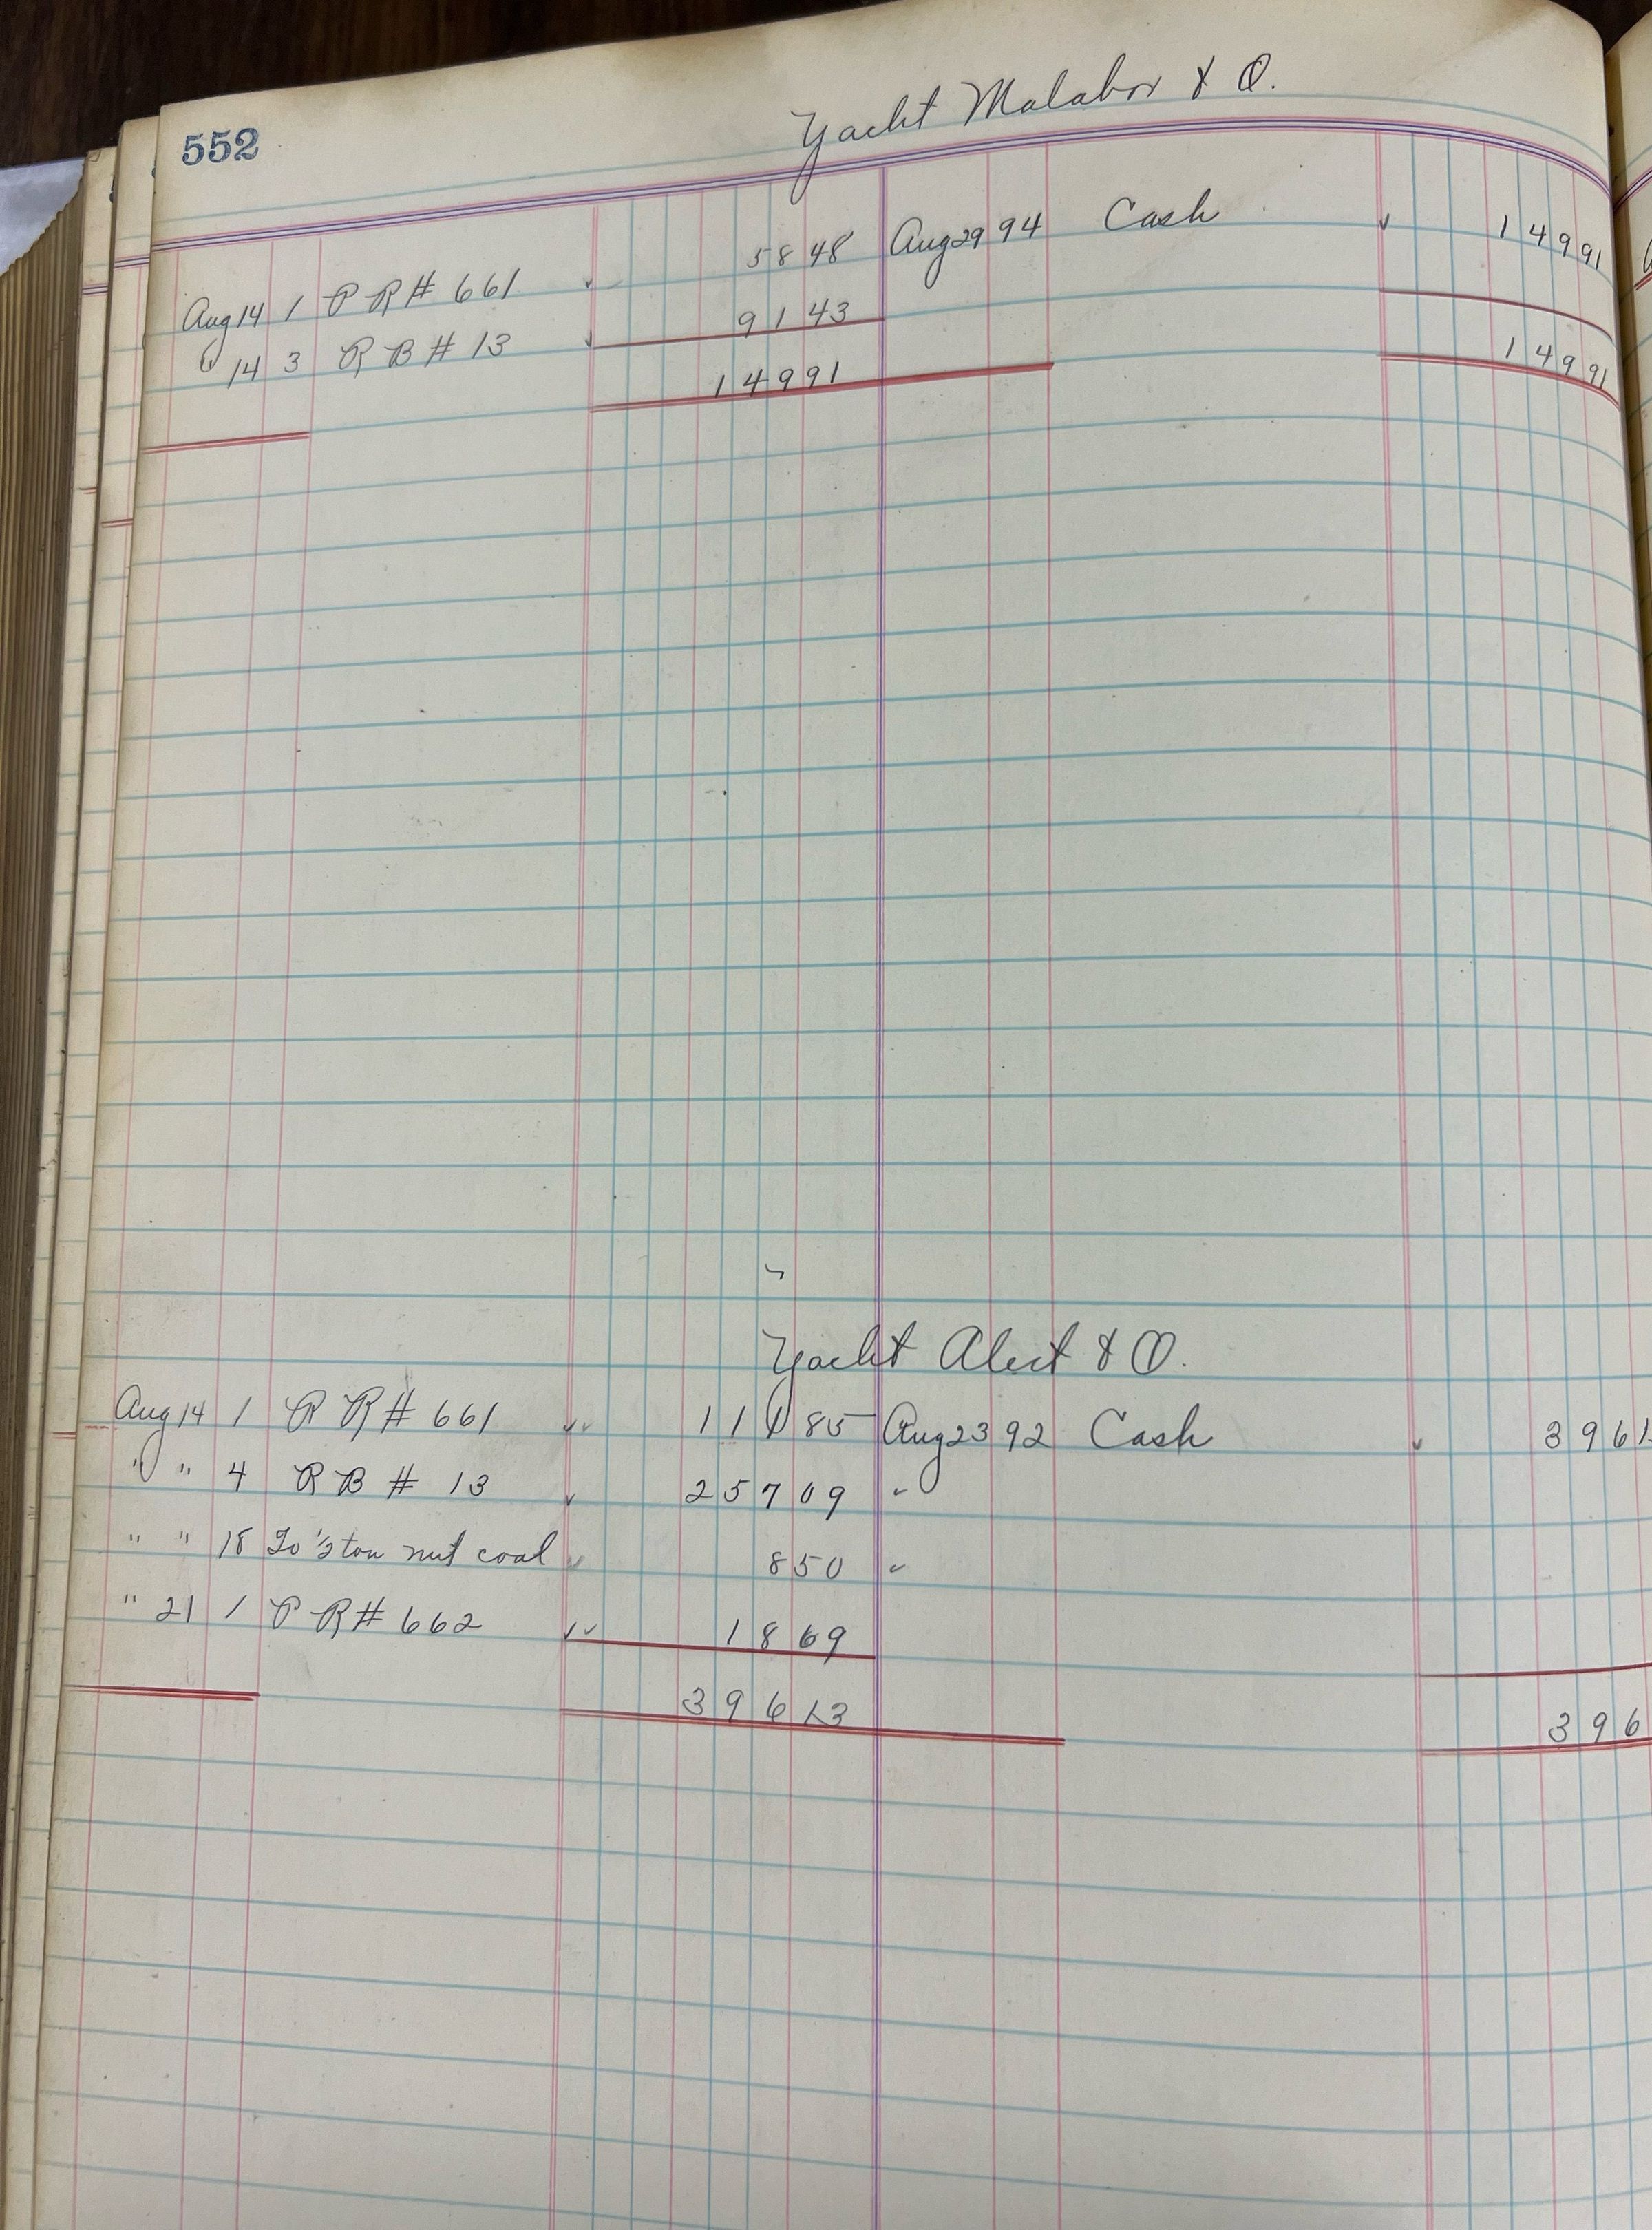 552
Yacht Malabor & O.
Aug 14 1 P R # 661 ✓ 58 48 Aug 29 94 Cash ✓ 149 91
" 14 3 R B # 13 ✓ 91 43
149 91 149 91
Yacht Alert & O.
Aug 14 1 P R # 661 ✓✓ 111 85 Aug 23 92 Cash ✓ 3961
" " 4 R B # 13 ✓ 257 09 "
" " 18 To ton nut coal ✓ 8 50 "
" 21 1 P R # 662 ✓✓ 18 69
396 13 396